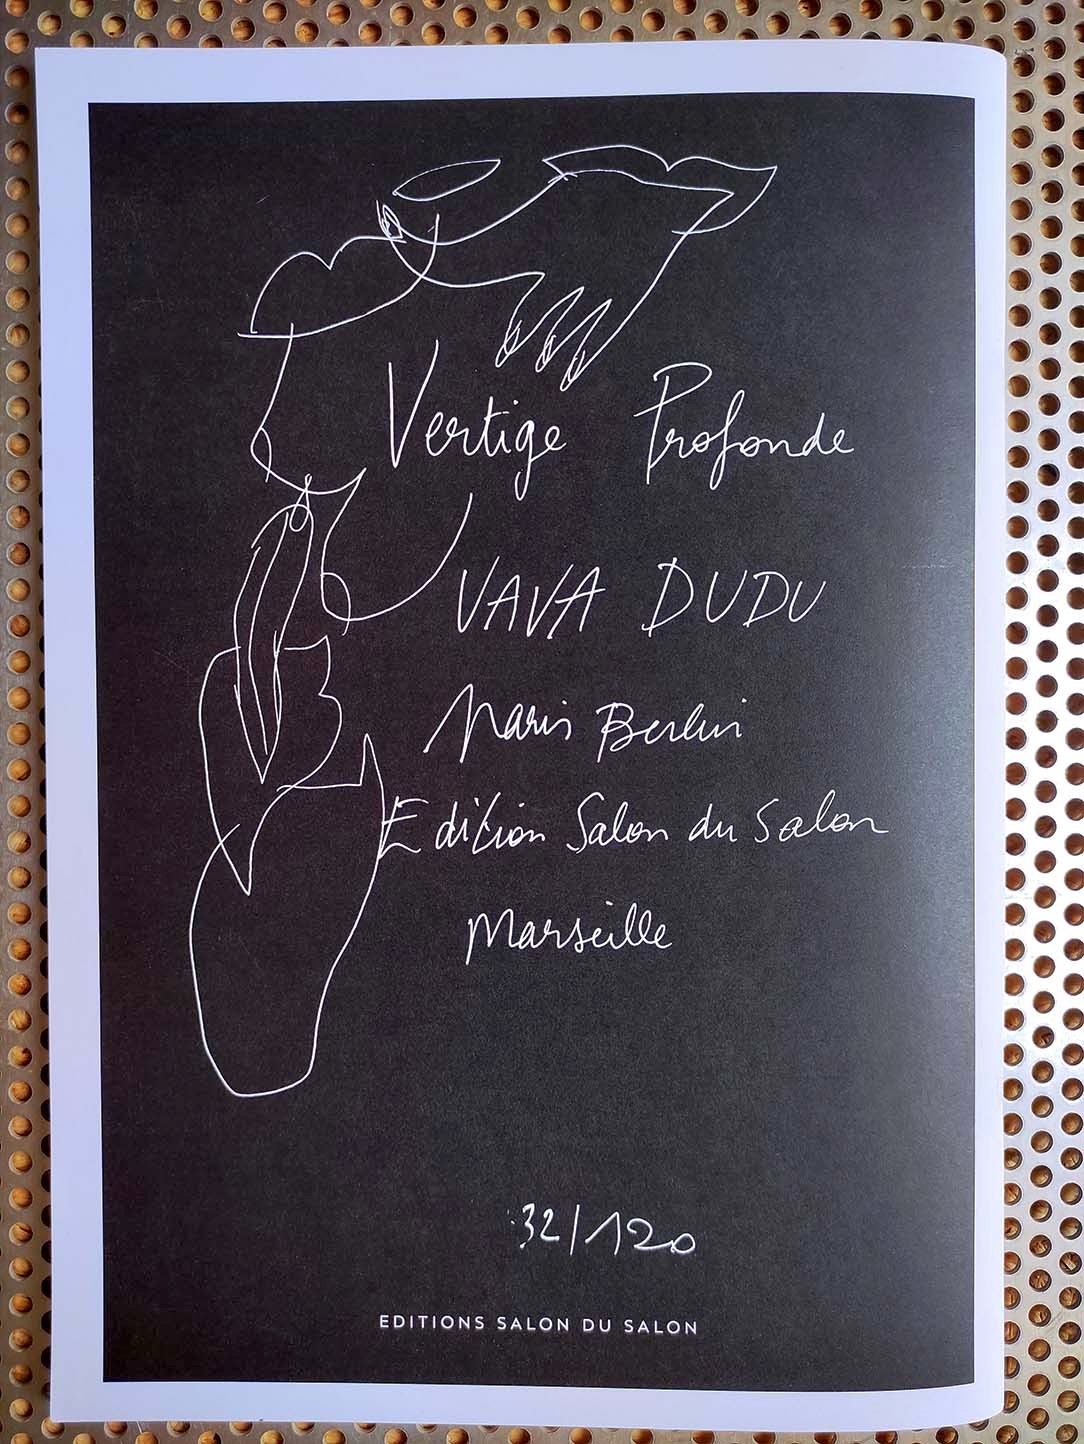 Vertige Profonde
VAVA DUDU
Paris Berlin
Edition Salon du Salon
Marseille
32/120
EDITIONS SALON DU SALON